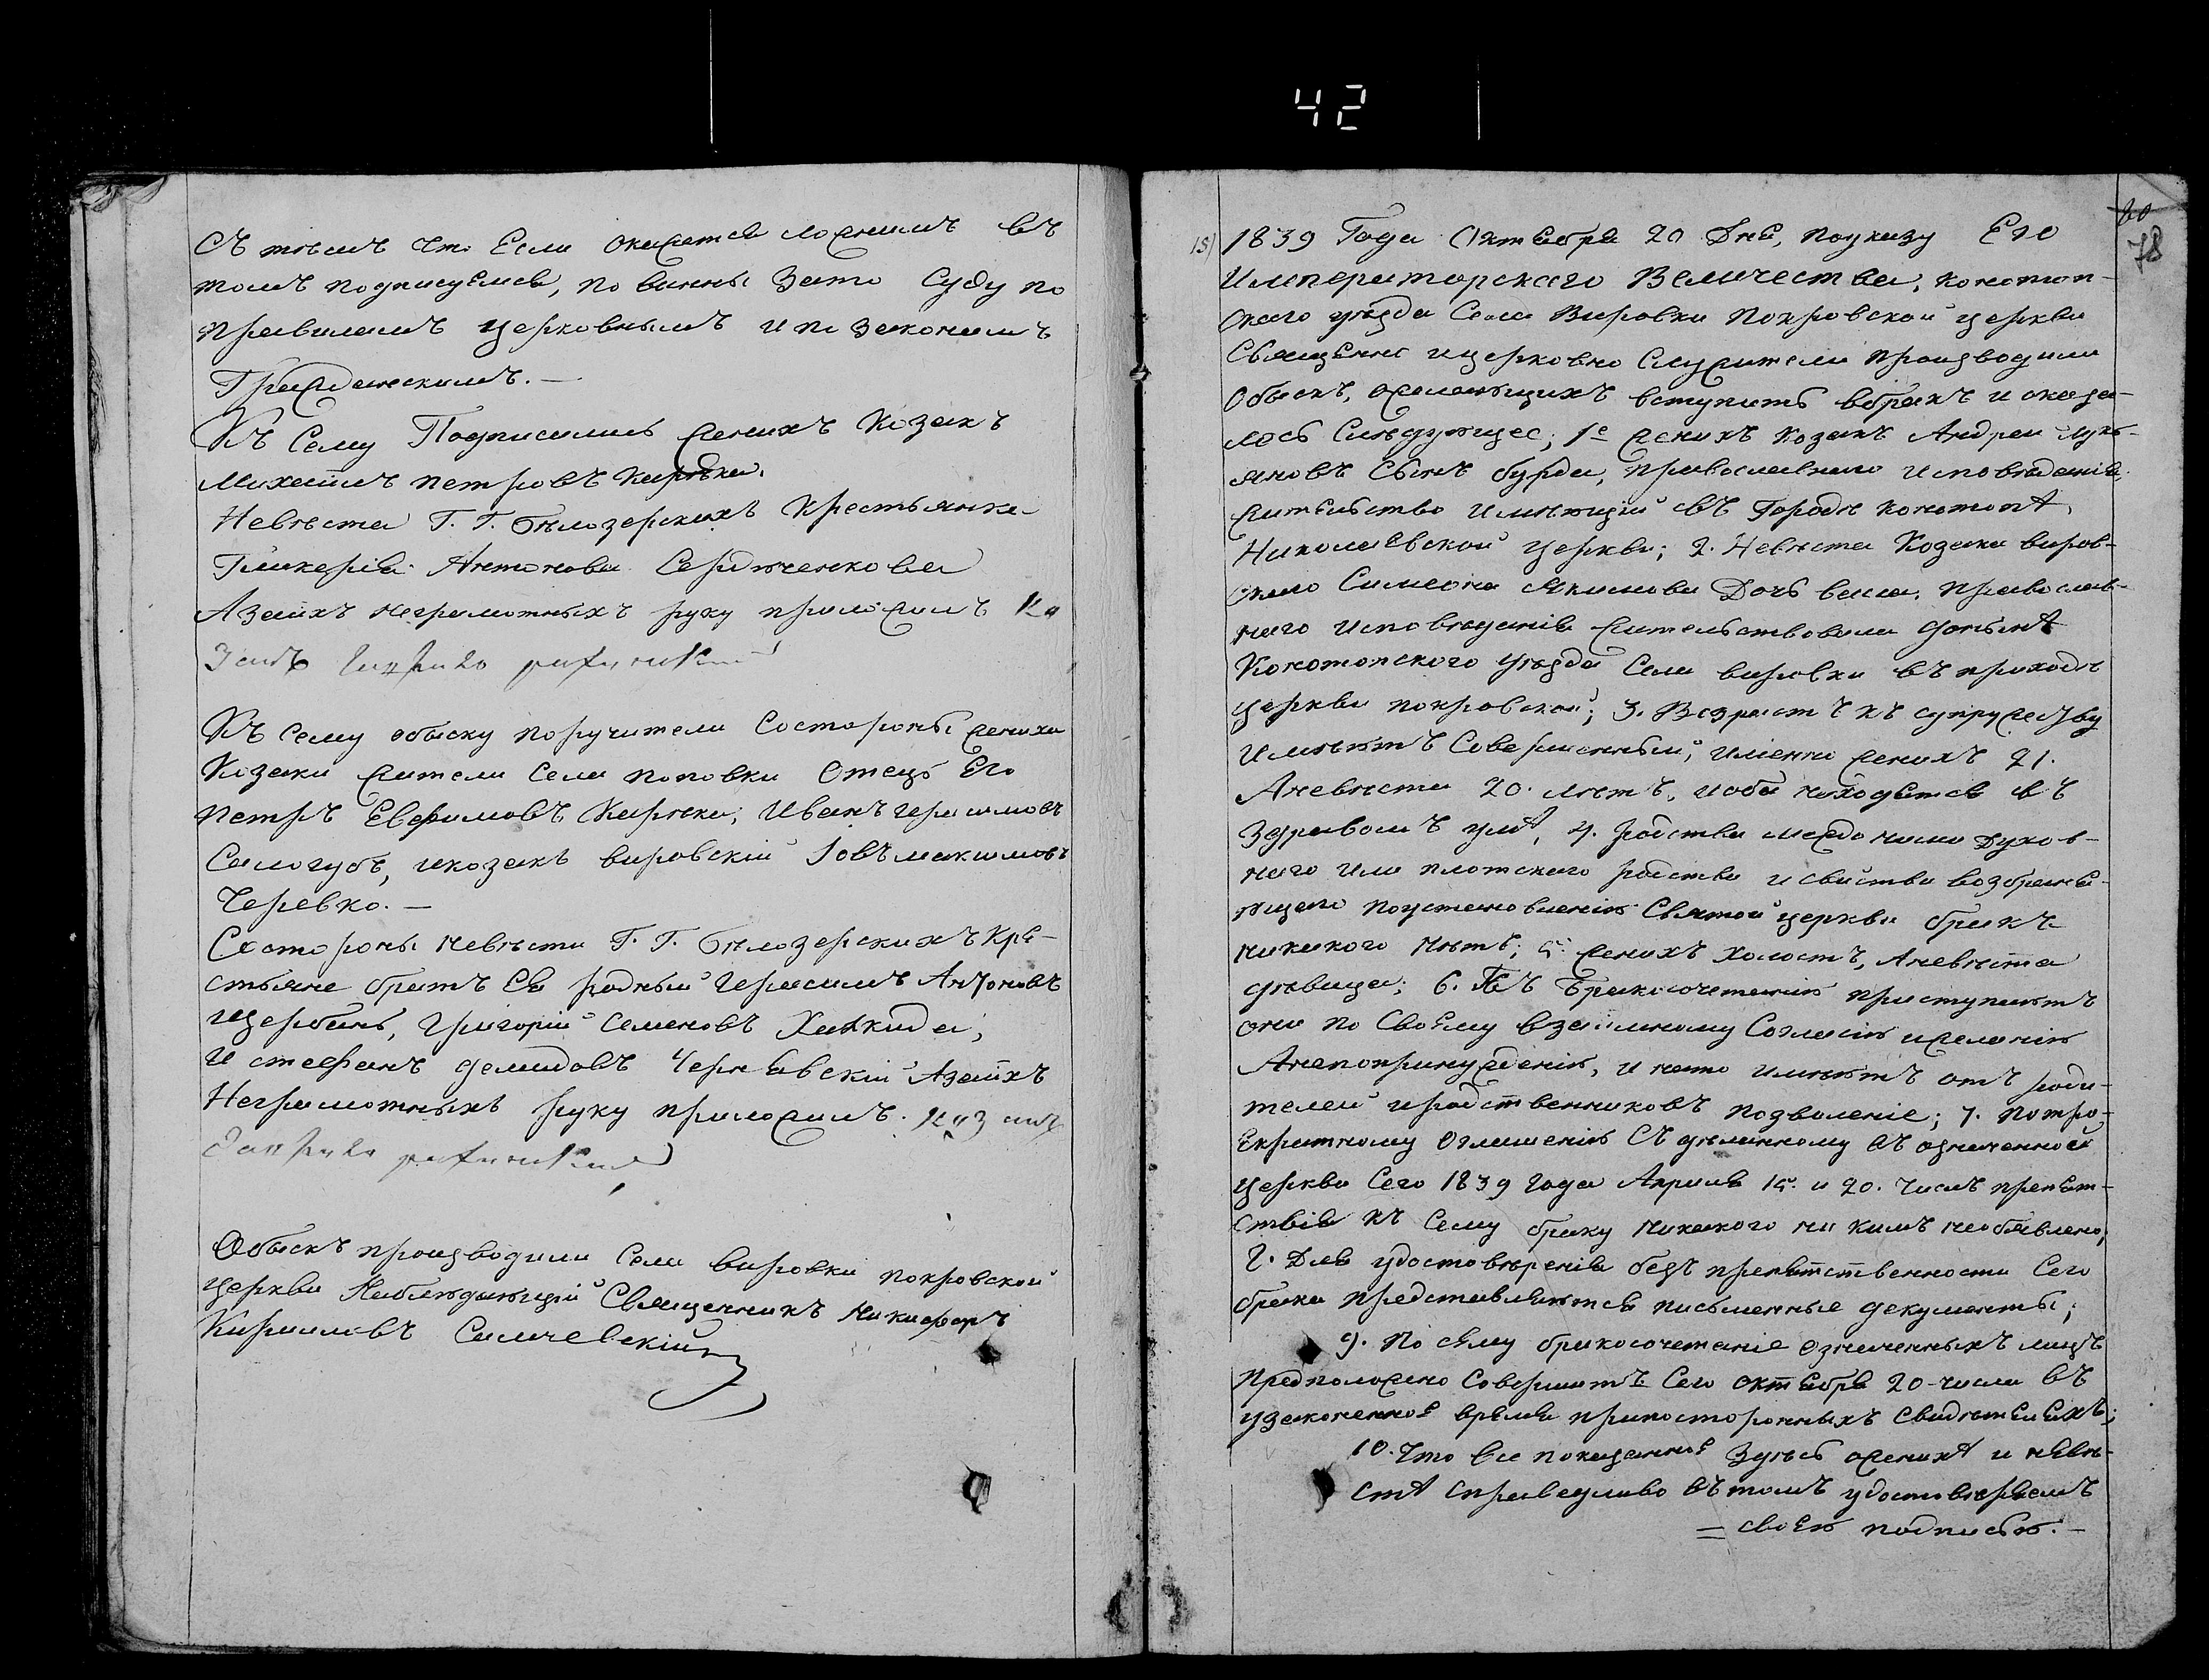 42
Съ тѣмъ что Если окажется ложнимъ въ
томъ подписуемся, повинны Зато Суду по
правиламъ церковнымъ и по законамъ
Гражданскимъ.—
Къ Сему Подписались женихъ Козакъ
Михаилъ петровъ Кирѣка,
Невѣста Г. Г. бѣлозерскихъ Крестьянка
Гликерія Антонова
Азаихъ неграмотныхъ руку приложилъ
Къ Сему обыску поручители Состороны жениха
Козаки жители Села поповки Отецъ Его
петръ Евфимовъ Кирѣка, Иванъ герасимовъ
Самогубъ, икозакъ вировскій Іовъ максимовъ
Черевко.—
Состороны невѣсти Г. Г. бѣлозерскихъ Кре-
стьяне братъ Ея родный Герасимъ Антоновъ
щербань, григорій Семеновъ
и стефанъ демидовъ Чернявскій Азаихъ
Неграмотныхъ руку приложилъ.
Обыскъ производили Села вировки покровской
церкви Наблюдающій Священникъ Никифоръ
Кириловъ Самчевскій
60
78
15) 1839 Года Октября 20 Дня, поуказу Его
Императорскаго Величества, конотоп-
скаго уѣзда Села Вировки Покровской церкви
Священно ицерковно Служители производили
Обыскъ, ожелающихъ вступить вбракъ и оказа-
лось Слѣдующее; 1е женихъ козакъ Андрей лукь-
яновъ Сынъ бурда, православнаго исповѣданія
жительство имѣющій въ Городѣ конотопѣ,
Николаевской церкви; 2. Невѣста Козака виров-
скаго Симеона Якимова Дочь васса, православ-
наго исповѣданія жительствовала донынѣ
Конотопского уѣзда Села вировки въ приходѣ
церкви покровской; 3. Возрастъ къ супружеству
имѣютъ Совершенный, именно женихъ 21.
Аневѣста 20. лѣтъ, иоба находятся въ
Здравомъ умѣ, 4. родства между ними Духов-
наго или плотскаго родства и свойства возбраня-
ющаго поустановленію Святой церкви бракъ
никакого нѣтъ; 5. женихъ холостъ, Аневѣста
дѣвица; 6. Къ Бракосочетанію приступаютъ
они по Своему взаимному Согласію ижеланію
Анепопринужденію, и нато имѣютъ отъ роди-
телей иродственниковъ позволеніе; 7. потро-
Екратному Оглашенію Съдѣланному въ означенной
церкви Сего 1839 Года Априля 15. и 20. Числъ препят-
ствія къ Сему браку никакого ни кимъ необявлено;
8. Для удостовѣренія безъ препятственности Сего
брака представляются письменные документы;
9. По Сему бракосочетаніе означенныхъ лицъ
предположено Совершить Сего Октября 20-числа въ
узаконенное время припостороннихъ Свидѣтеляхъ;
10. Что все показанное Здѣсь оженихѣ и невѣ-
стѣ справедливо въ томъ удостовѣряемъ
= своею подписью.—